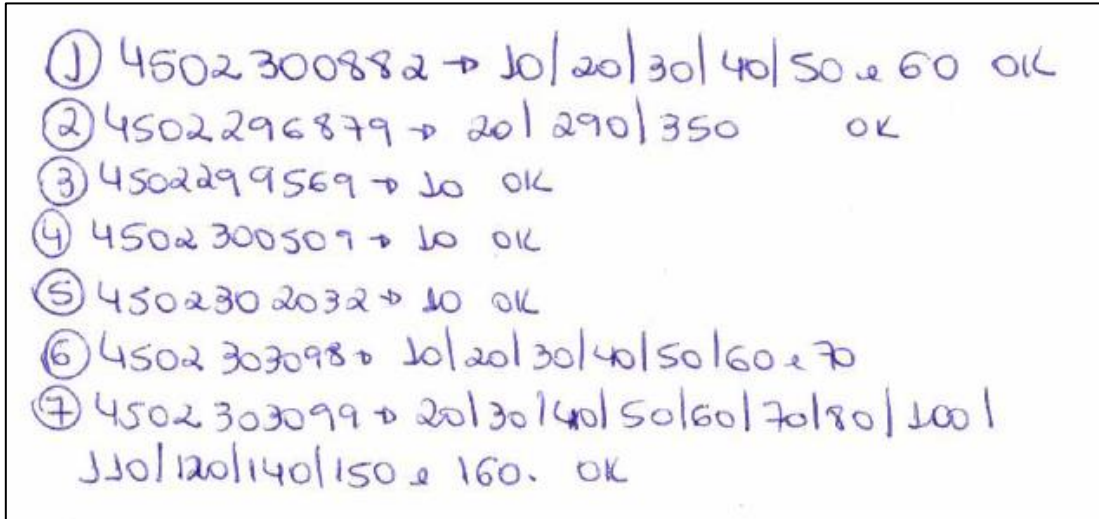 ① 4502300882 → 10/20/30/40/50 e 60 OK
② 4502296879 → 20/290/350 OK
③ 4502299569 → 10 OK
④ 4502300509 → 10 OK
⑤ 4502302032 → 10 OK
⑥ 4502303098 → 10/20/30/40/50/60 e 70
⑦ 4502303099 → 20/30/40/50/60/70/80/100/
110/120/140/150 e 160. OK